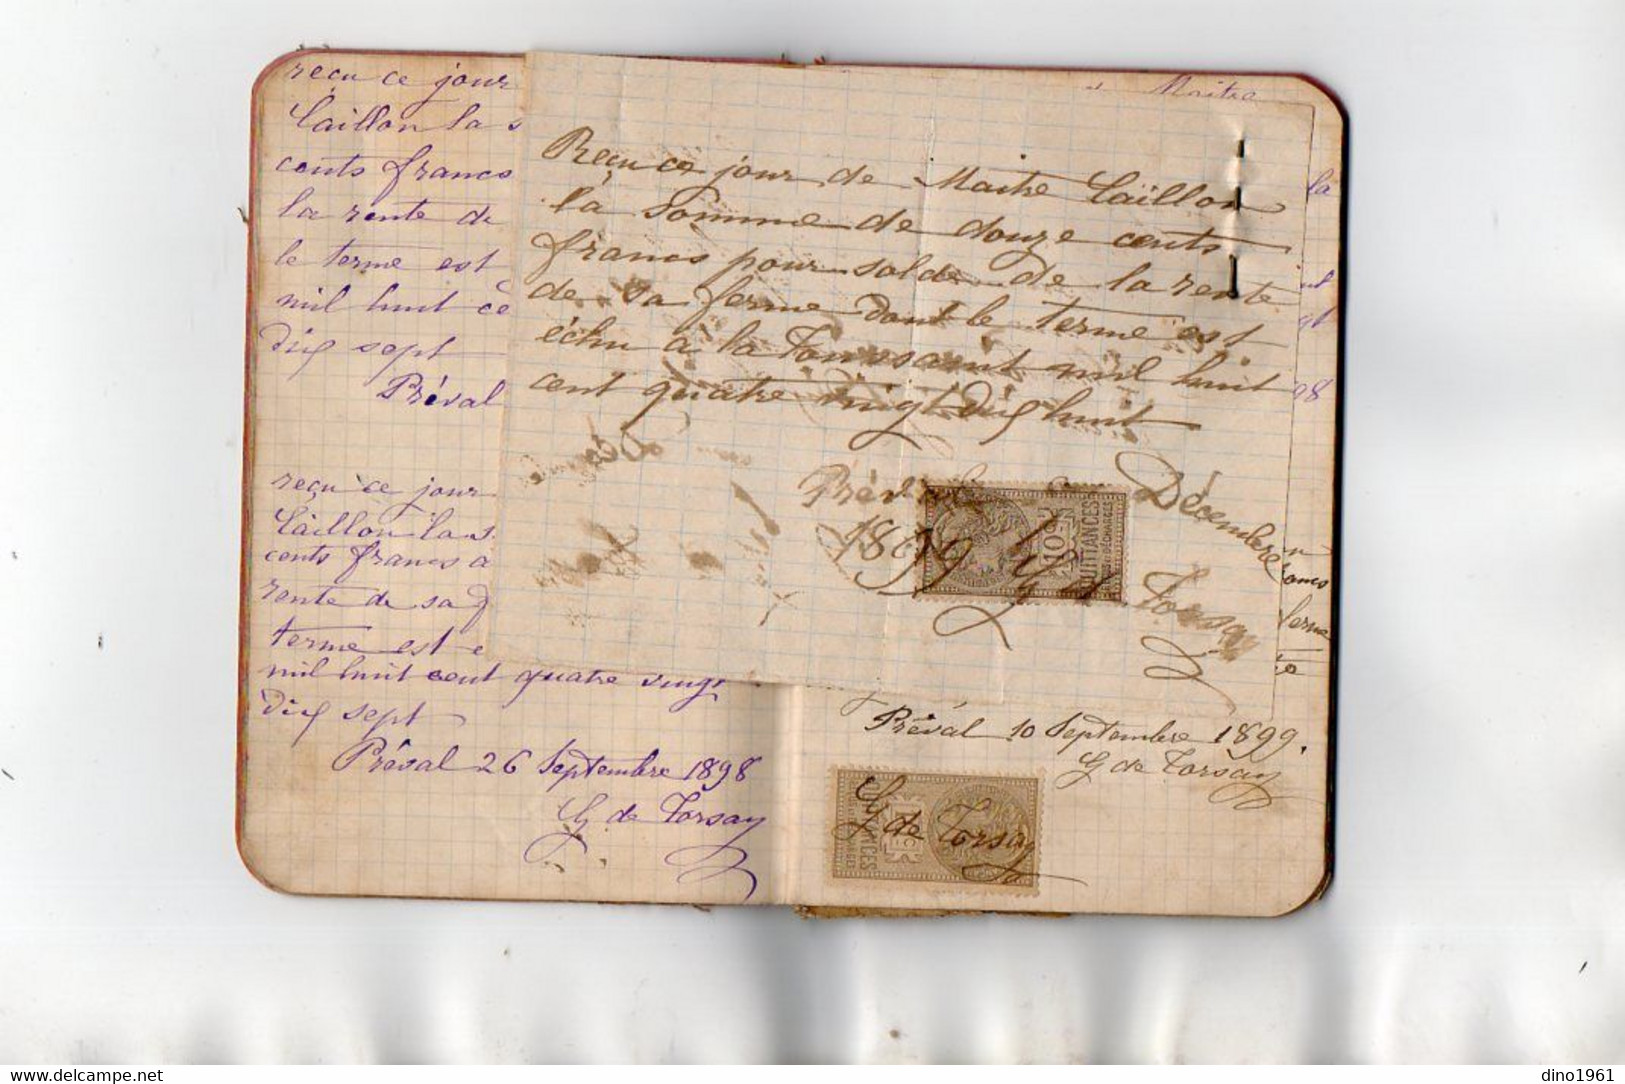 reçu ce jour
Caillon la s
cents francs
la rente de
le terme est
mil huit ce
dix sept
Préval
reçu ce jour
Caillon la s
cents francs a
rente de sa f
terme est e
mil huit cent quatre vingt
dix sept
Préval 26 Septembre 1898
G de Torsay
Maitre
Reçu ce jour de Maitre Caillon
la somme de douze cents
francs pour solde de la rente
de sa ferme dont le terme est
échu à la Toussaint mil huit
cent quatre vingt dix huit
Préval Décembre
1899 G de Torsay
10c
QUITTANCES
la
98
rancs
ferme
Préval 10 Septembre 1899.
G de Torsay
G de Torsay
dino1961